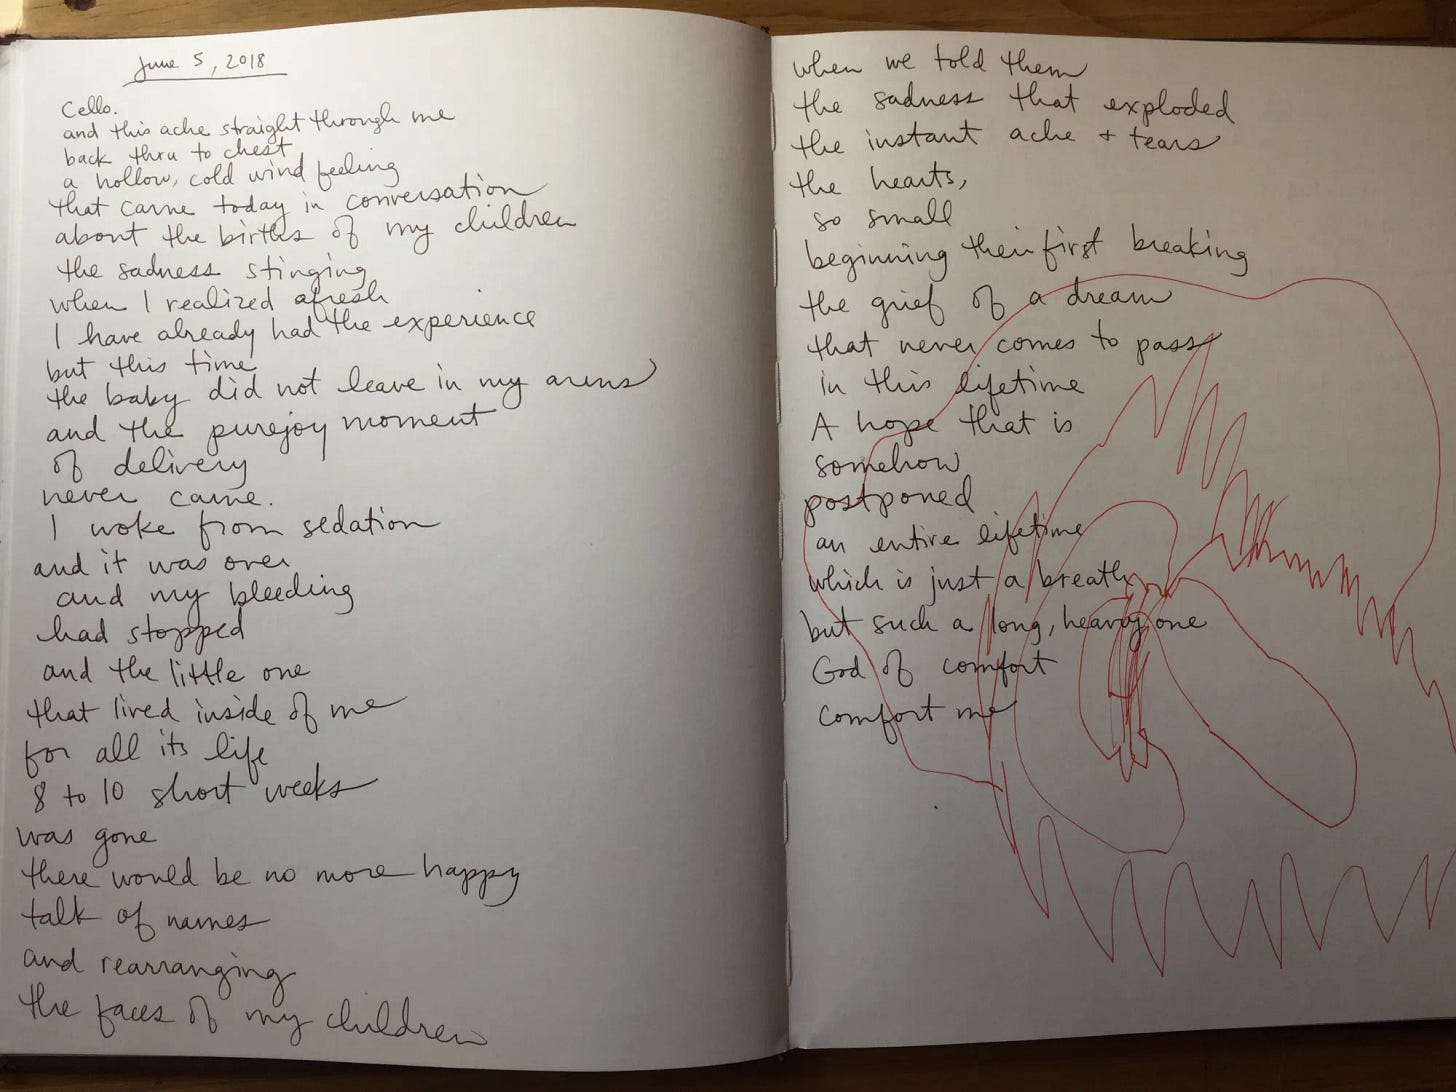 June 5, 2018
Cello.
and this ache straight through me
back thru to chest
a hollow, cold wind feeling
that came today in conversation
about the births of my children
the sadness stinging
when I realized afresh
I have already had the experience
but this time
the baby did not leave in my arms
and the purejoy moment
of delivery
never came.
I woke from sedation
and it was over
and my bleeding
had stopped
and the little one
that lived inside of me
for all its life
8 to 10 short weeks
was gone
there would be no more happy
talk of names
and rearranging
the faces of my children
when we told them
the sadness that exploded
the instant ache + tears
the hearts,
so small
beginning their first breaking
the grief of a dream
that never comes to pass
in this lifetime
A hope that is
somehow
postponed
an entire lifetime
which is just a breath
but such a long, heavy one
God of comfort
comfort me